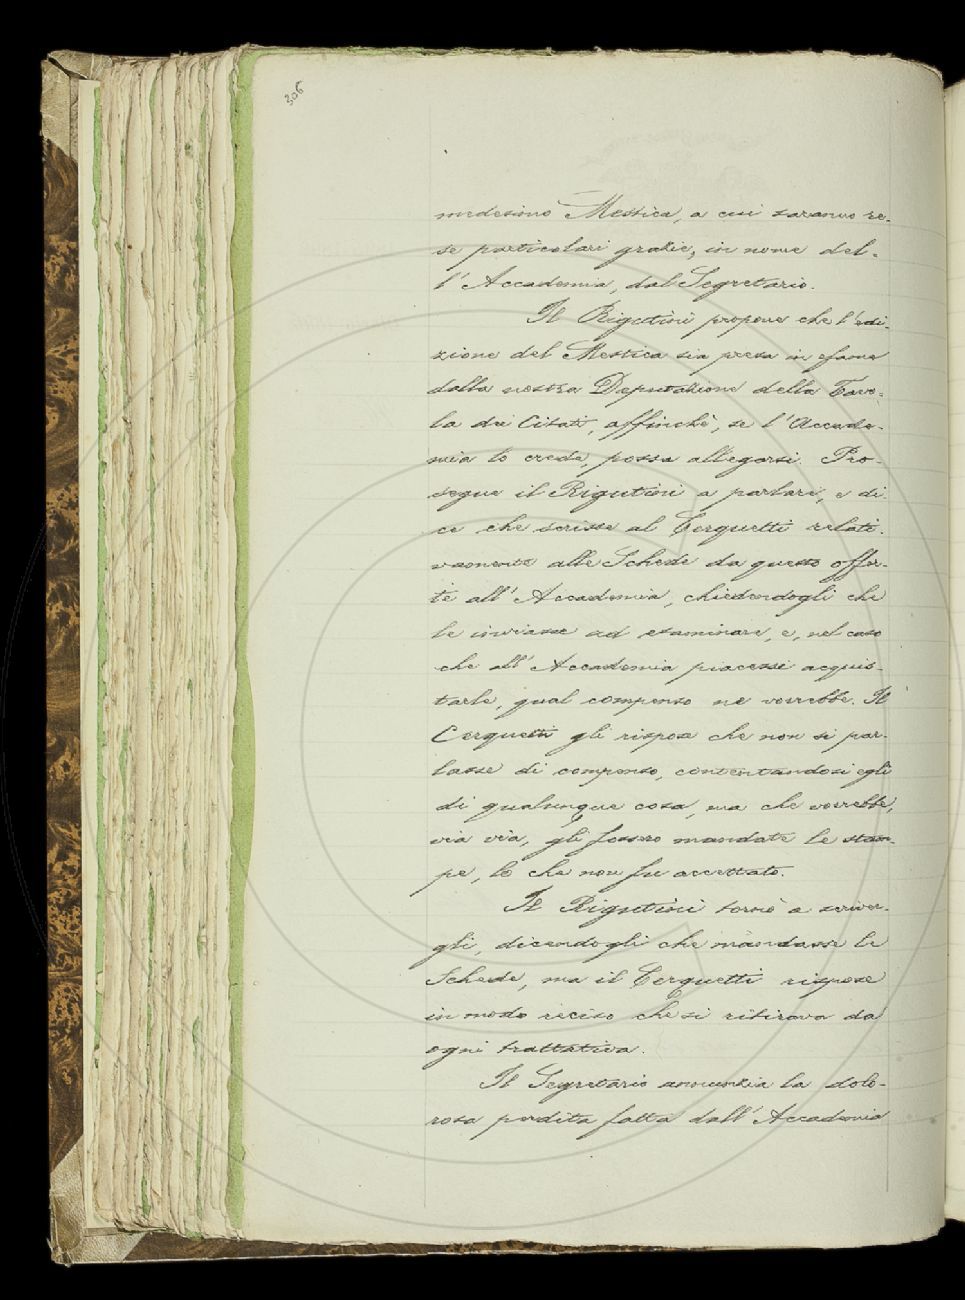 306
medesimo Mestica, a cui saranno re-
se particolari grazie, in nome del-
l'Accademia, dal Segretario.
Il Rigutini propone che l'edi-
zione del Mestica sia presa in esame
dalla nostra Deputazione della Tavo-
la dei Citati, affinchè, se l'Accade-
mia lo crede, possa allegarsi. Pro-
segue il Rigutini a parlare, e di-
ce che scrisse al Cerquetti relati-
vamente alle Schede da questo offer-
te all'Accademia, chiedendogli che
le inviasse ad esaminare, e, nel caso
che all'Accademia piacesse acquis-
tarle, qual compenso ne vorrebbe. Il
Cerquetti gli rispose che non si par-
lasse di compenso, contentandosi egli
di qualunque cosa, ma che vorrebbe,
via via, gli fossero mandate le stam-
pe, lo che non fu accettato.
Il Rigutini tornò a scriver-
gli, dicendogli che mandasse le
Schede, ma il Cerquetti rispose
in modo reciso che si ritirava da
ogni trattativa.
Il Segretario annunzia la dolo-
rosa perdita fatta dall'Accademia